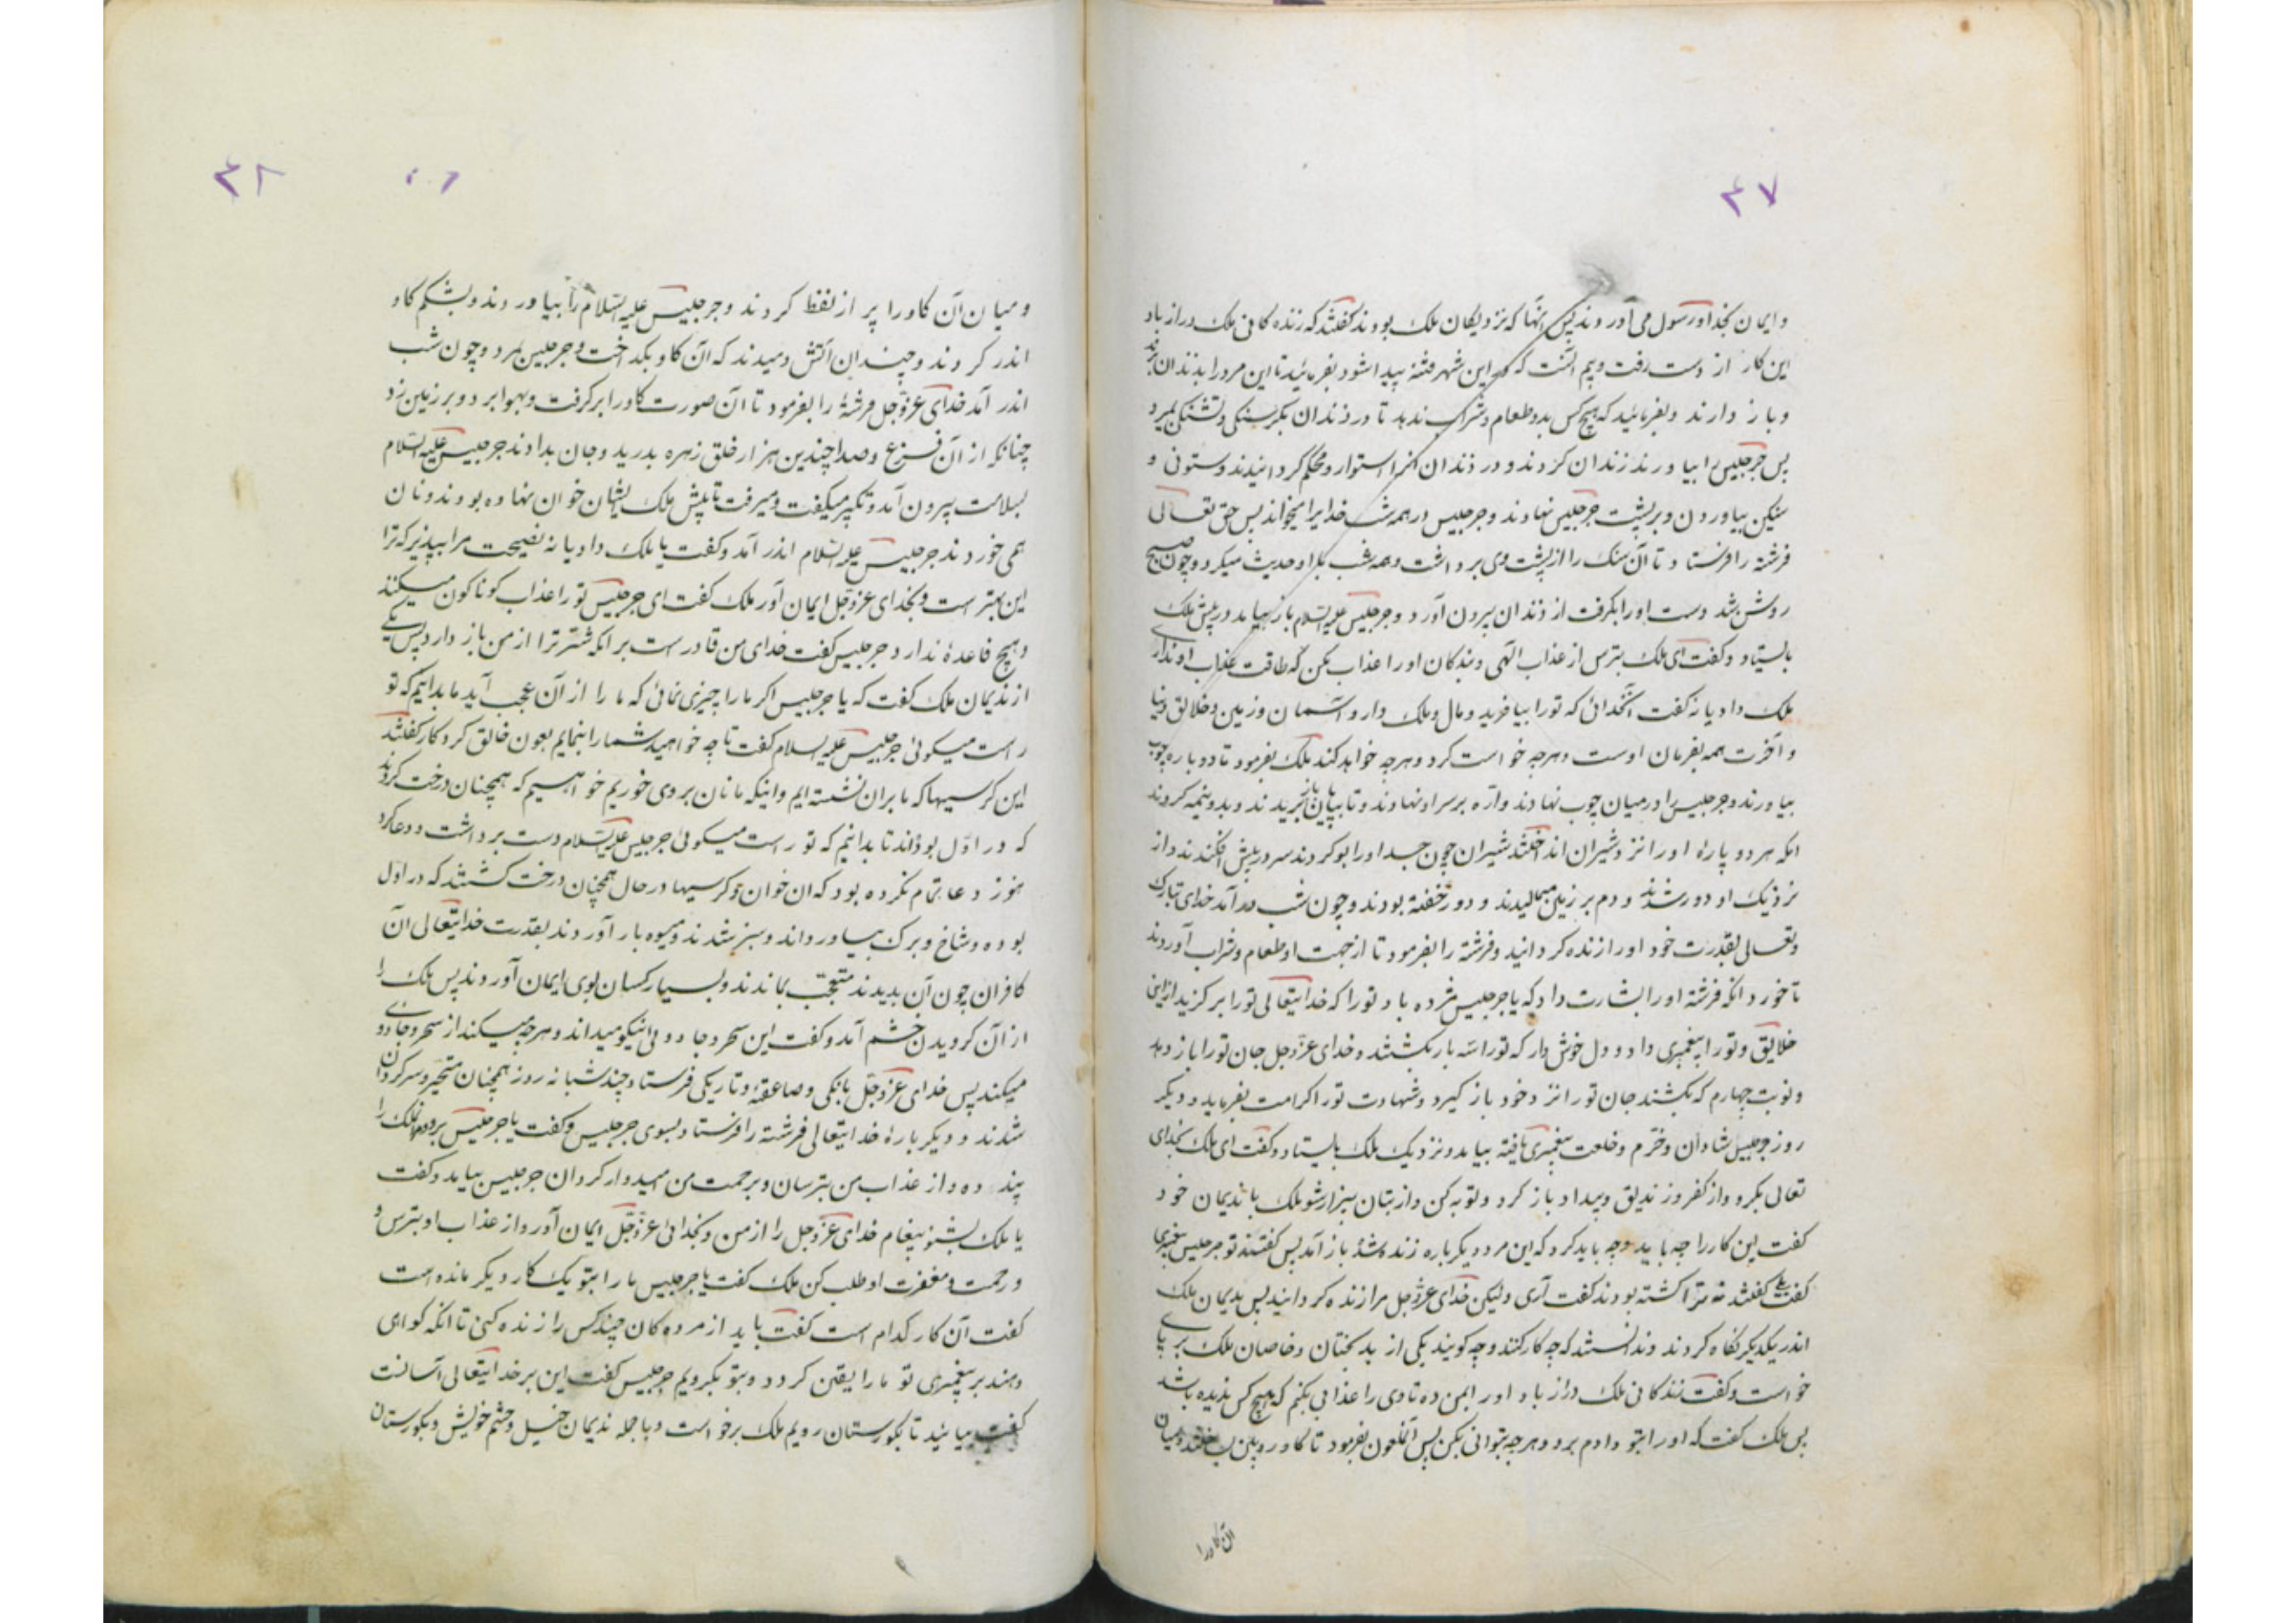 ۴۷
و ایمان بخدا و رسول می آوردند پس آنها که نزدیکان ملک بودند گفتند که زنده کانی ملک دراز باد
این کار از دست رفت و بیم آنست که این شهر فتنه پیدا شود بفرمائید تا این مرد را بزندان برند
و باز دارند و بفرمائید که هیچ کس بدو طعام و شراب ندهد تا در زندان بگرسنگی و تشنگی بمیرد
پس جرجلیس را بیاورند زندان کردند و در زندان استوار و محکم گردانیدند و ستونی و
سنکین بیاوردن و بر پشت جرجلیس نهادند و جرجلیس در همه شب خدایرا میخواند پس حق تعالی
فرشته را فرستاد تا آن سنک را از پشت وی برداشت و همه شب با او حدیث میکرد و چون صبح
روشن شد دست او را بگرفت از زندان بیرون آورد و جرجلیس علیه السلام باز بیامد در پیش ملک
بایستاد و گفت ای ملک بترس از عذاب الهی و بندکان او را عذاب مکن که طاقت عذاب او نداری
ملک دادیانه گفت آنخدائی که تو را بیافرید و مال و ملک داد و آسمان و زمین و خلایق دنیا
و آخرت همه بفرمان اوست و هرچه خواست کرد و هرچه خواهد کند ملک بفرمود تا دوباره چوب
بیاورند و جرجلیس را در میان چوب نهادند و اره بر سر او نهادند و تا بپایان ببریدند و بدو نیمه کردند
انکه هر دو پارۀ او را نزد شیران انداختند شیران چون جسد او را بو کردند سر در پیش افکندند و از
نزدیک او دور شدند و دم بر زمین میمالیدند و دور خفته بودند و چون شب در آمد خدای تبارک
و تعالی بقدرت خود او را زنده کردانید و فرشته را بفرمود تا از جهت او طعام و شراب آوردند
تا خورد انکه فرشته او را بشارت داد که یا جرجلیس مژده باد تو را که خدایتعالی تو را برگزید از این
خلایق و تو را پیغمبری داد و دل خوش دار که تو را سه بار بکشند و خدای عزوجل جان تو را باز دهد
و نوبت چهارم که بکشند جان تو را نزد خود باز گیرد و شهادت تو را کرامت بفرماید و دیگر
روز جرجلیس شادان و خرم و خلعت پیغمبری یافته بیامد و نزدیک ملک بایستاد و گفت ای ملک بخدای
تعالی بگرو و از کفر و زندیق و بیداد باز کرد و توبه کن و از بتان بیزار شو ملک با ندیمان خود
گفت این کار را چه باید و چه باید کرد که این مرد دیگر باره زنده شد و باز آمد پس گفتند تو جرجلیس پیغمبری
گفت بلی گفتند نه ترا کشته بودند گفت آری ولیکن خدای عزوجل مرا زنده کردانید پس ندیمان ملک
اندر یکدیگر نگاه کردند و ندانستند که چه کار کنند و چه کویند یکی از بدبختان و خاصان ملک بر پای
خواست و گفت زندکانی ملک دراز باد او را بمن ده تا وی را عذابی بکنم که هیچ کس ندیده باشد
پس ملک گفت که او را بتو دادم برو و هرچه بتوانی بکن پس آنملعون بفرمود تا کاو رویین و میان
آن کاو را
۴۸
و میان آن کاو را پر از نفط کردند و جرجلیس علیه السلام را بیاوردند و بشکم کاو
اندر کردند و چندان آتش دمیدند که آن کاو بکداخت و جرجلیس بمرد و چون شب
اندر آمد خدای عزوجل فرشتۀ را بفرمود تا آن صورت کاو را برگرفت و بهوا برد و بر زمین زد
چنانکه از آن فزع و صدا چندین هزار خلق زهره بدرید و جان بدادند جرجلیس علیه السلام
بسلامت بیرون آمد و تکبیر میکفت و میرفت تا پیش ملک ایشان خوان نهاده بودند و نان
همی خوردند جرجلیس علیه السلام اندر آمد و گفت یا ملک دادیانه نصیحت مرا بپذیر که ترا
این بهتر است و بخدای عزوجل ایمان آور ملک گفت ای جرجلیس تو را عذاب کوناکون میکنند
و هیچ فاعدۀ ندارد جرجلیس گفت خدای من قادر است بر انکه شر ترا از من باز دارد پس یکی
از ندیمان ملک گفت که یا جرجلیس اگر ما را چیزی نمائی که ما را از آن عجب آید ما بدانیم که تو
راست میکوئی جرجلیس علیه السلام گفت تا چه خواهید شما را بنمایم بعون خالق کردکار گفتند
این کرسیها که ما بران نشسته ایم و اینکه ما نان بر وی خوریم خواهیم که همچنان درخت کردند
که در اول بودند تا بدانیم که تو راست میکوئی جرجلیس علیه السلام دست برداشت و دعا کرد
هنوز دعا تمام نکرده بود که ان خوان و کرسیها در حال همچنان درخت کشتند که در اول
بوده و شاخ و برک بیاورداند و سبز شدند و میوه بار آوردند بقدرت خدایتعالی آن
کافران چون آن بدیدند متعجب بماندند و بسیار کسان بوی ایمان آوردند پس ملک را
از آن کرویدن خشم آمد و گفت این سحر و جادوئی نیکو میداند و هرچه میکند از سحر و جادوی
میکند پس خدای عزوجل بانکی و صاعقه و تاریکی فرستاد چند شبانه روز همچنان متحیر و سرکردان
شدند و دیگر بارۀ خدایتعالی فرشته را فرستاد بسوی جرجلیس و گفت یا جرجلیس برو و ملک را
پند ده و از عذاب من بترسان و برحمت من امیدوار کردان جرجلیس بیامد و گفت
یا ملک بشنو پیغام خدای عزوجل را از من و بخدائی عزوجل ایمان آور و از عذاب او بترس و
و رحمت و مغفرت او طلب کن ملک گفت یا جرجلیس ما را بتو یک کار دیگر مانده است
گفت آن کار کدام است گفت باید از مرده کان چند کس را زنده کنی تا انکه کواهی
دهند بر پیغمبری تو ما را یقین کردد و بتو بگرویم جرجلیس گفت این بر خدایتعالی آسانست
گفت بیائید تا بکورستان رویم ملک برخواست و با جمله ندیمان خیل و حشم خویش و بکورستان